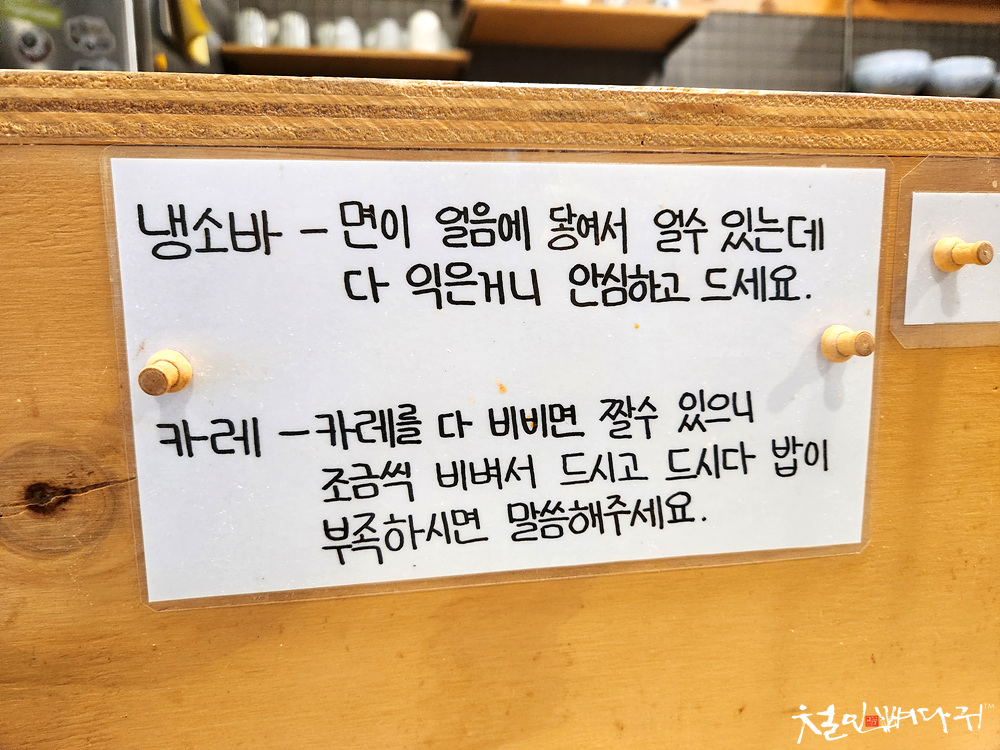 냉소바 - 면이 얼음에 닿여서 얼수 있는데
다 익은거니 안심하고 드세요.
카레 - 카레를 다 비비면 짤수 있으니
조금씩 비벼서 드시고 드시다 밥이
부족하시면 말씀해주세요.
철인뼈다귀™